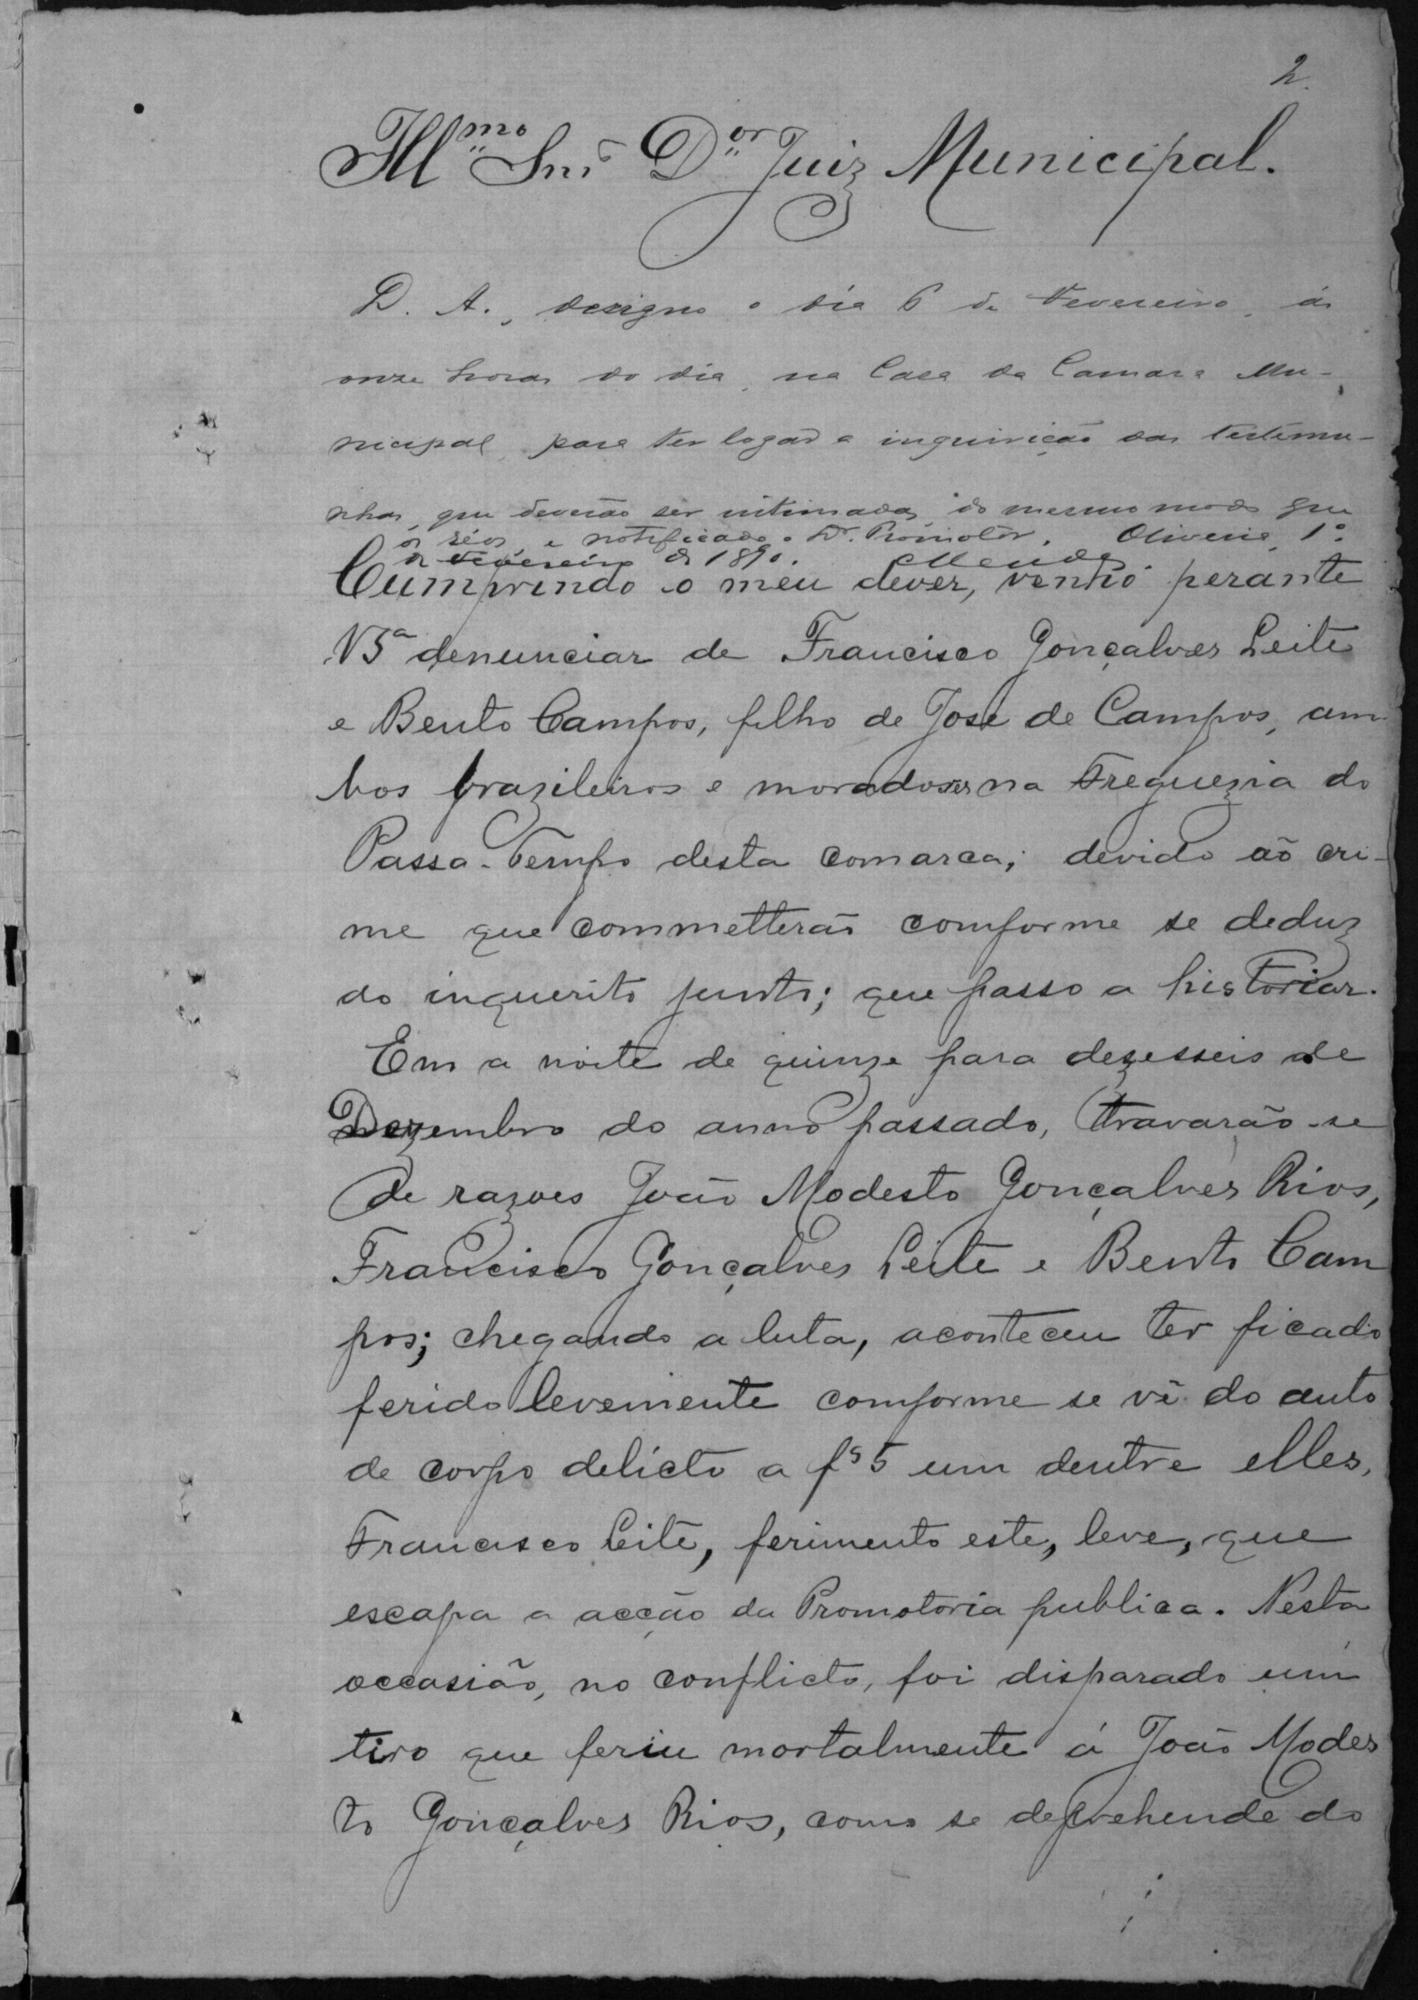 2
Illmo Snr Dor Juiz Municipal.
D. A., designo o dia 6 de Fevereiro, ás
onze horas do dia, na Casa da Camara Mu-
nicipal, para ter logar a inquirição das testemu-
nhas, que deverão ser intimadas, do mesmo modo que
os réos, e notificado o Dr. Promotor. Oliveira, 1º
de Fevereiro de 1890.
Cumprindo o meu dever, venho perante
VSª denunciar de Francisco Gonçalves Leite
e Bento Campos, filho de José de Campos, am
bos brazileiros e moradores na Freguezia do
Passa-Tempo desta comarca; devido aõ cri-
me que commetterão comforme se deduz
do inquerito junto; que passo a historiar.
Em a noite de quinze para dezesseis de
Dezembro do anno passado, travarão-se
de razoes João Modesto Gonçalves Rios,
Francisco Gonçalves Leite e Bento Cam
pos; chegando a luta, aconteceu ter ficado
ferido levemente comforme se vê do auto
de corpo delicto a fs 5 um dentre elles,
Francisco Leite, ferimento este, leve, que
escapa a acção da Promotoria publica. Nesta
occasião, no conflicto, foi disparado um
tiro que feriu mortalmente á João Modes
to Gonçalves Rios, como se deprehende do